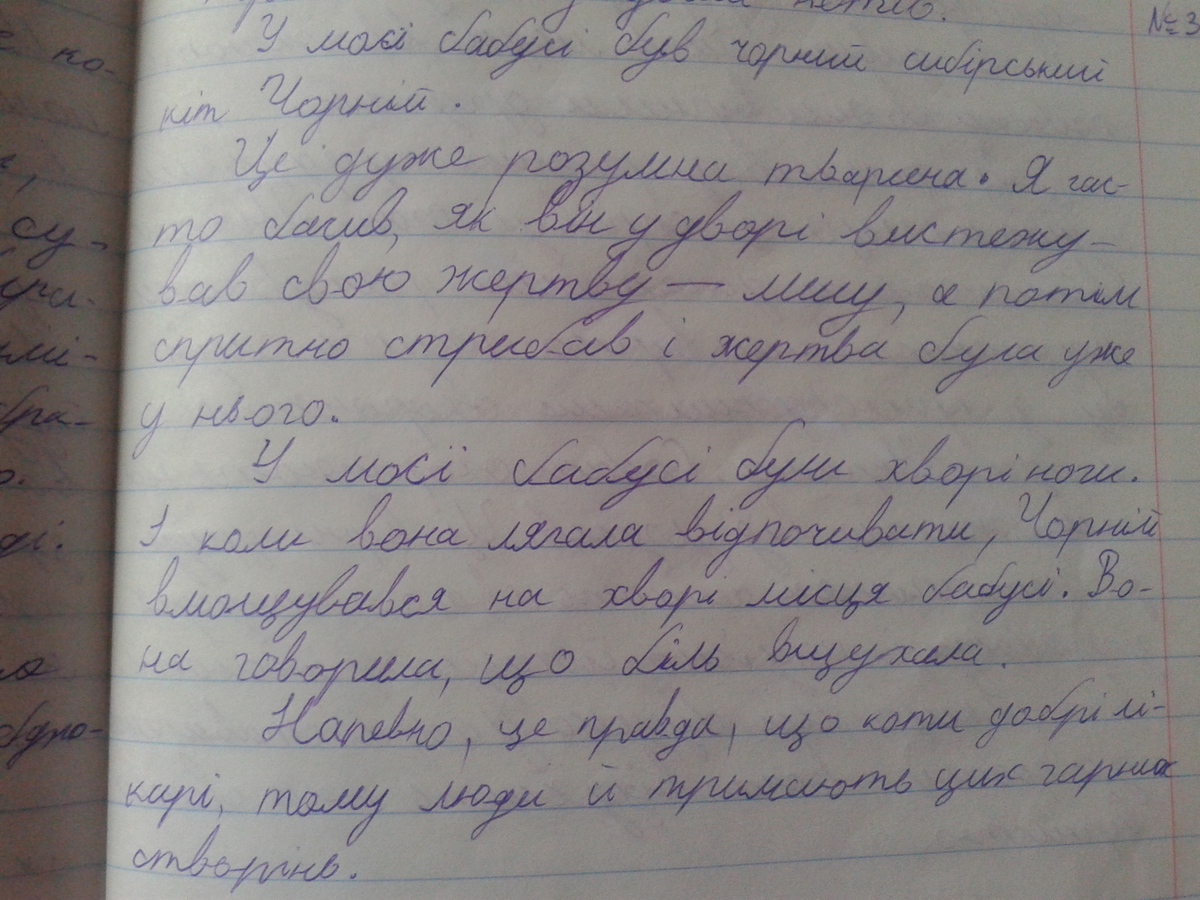 котів.
№3
У моєї бабусі був чорний сибірський
ко-
кіт Чорній.
Це дуже розумна тварина. Я час-
су-
то бачив, як він у дворі вистежу-
вав свою жертву — мишу, а потім
спритно стрибав і жертва була уже
у нього.
У моєї бабусі були хворі ноги.
І коли вона лягала відпочивати, Чорній
вмощувався на хворі місця бабусі. Во-
на говорила, що біль вщухала.
Напевно, це правда, що коти добрі лі-
карі, тому люди й тримають цих гарних
створінь.